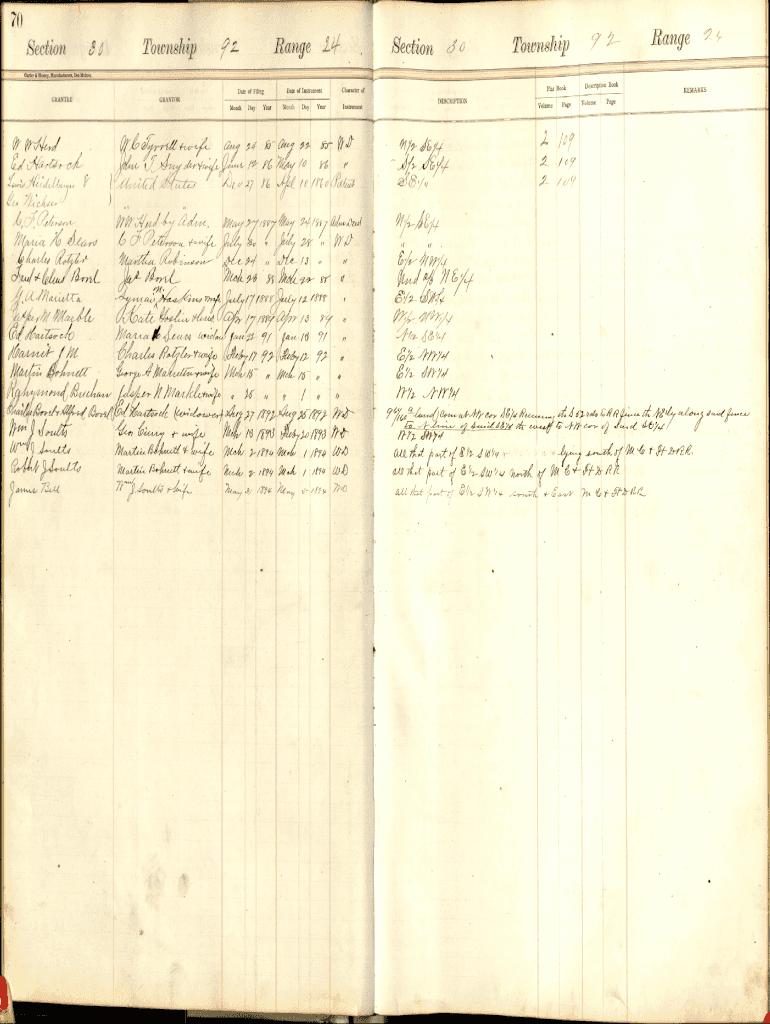 70
Section 30 Township 92 Range 24 Section 30 Township 92 Range 24
Carter & Hussey, Manufacturers, Des Moines.
GRANTEE GRANTOR Date of Filing Date of Instrument Character of Instrument DESCRIPTION Plat Book Description Book REMARKS
Month Day Year Month Day Year Volume Page Volume Page
W W Herd W C Tyrrell & wife Aug 24 85 Aug 22 85 W D N/2 SE/4 2 109
Ed Hartsock John T Snyder & wife June 12 86 May 10 86 " S/2 SE/4 2 109
Lewis Heidelberger & United States Dec 27 86 Apl 10 1860 Patent SE/4 2 109
Geo
C F Peterson W W Herd by Adm. May 27 1887 May 24 1887 Adm Deed N/2 SE/4
Maria H Sears C F Peterson & wife July 30 " July 28 " W D " "
Charles Rotzler Martha Robinson Dec 24 " Dec 13 " " E/2 NW/4
Fred & Chas Bord Jas Bord Mch 23 88 Mch 22 88 " Und 2/3 NE/4
G. A. Marietta Lyman M. Haskins & wife July 17 1888 July 12 1888 " E/2 SW/4
Jasper M Markle Kate Apr 17 1889 Apr 13 89 " W/2 NW/4
Ed Hartsock Maria H Sears widow Jan 23 91 Jan 13 91 " N/2 SE/4
J M Charles Rotzler & wife Feby 17 92 Feby 12 92 " E/2 NW/4
Martin Bohnett George A Marietta & wife Mch 15 " Mch 15 " " E/2 SW/4
Raghymond Buchan Jasper M Markle & wife " 25 " " 1 " " W/2 NW/4
Charles Bord & Alfred Bord Ed Hartsock (widower) Aug 27 1892 Aug 25 1892 W D land Com at NW cor SE/4 Running th S 52 rds to RR fence th NEly along said fence
to N line of said SE/4 th west to NW cor of said SE/4
Wm J Soults Geo Curry & wife Mch 13 1893 Feby 20 1893 W D W/2 SW/4
Wm J Soults Martin Bohnett & wife Mch 2 1894 Mch 1 1894 W D All that part of E/2 SW/4 lying south of M C & Ft D RR.
Robert J Soults Martin Bohnett & wife Mch 2 1894 Mch 1 1894 W D all that part of E/2 SW/4 north of M C & Ft D RR
James Bell Wm J Soults & wife May 2 1894 May 1894 W D all that part of E/2 SW/4 south & East M C & Ft D RR